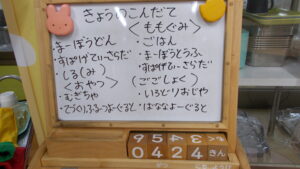 きょうのこんだて
<ももぐみ>
・まーぼうどん
・すぱげてぃーさらだ
・しる(み)
<おやつ>
・むぎちゃ
・ごはん
・まーぼうとうふ
・すぱげてぃーさらだ
(ごごしょく)
・いろどりおじや
・ばななよーぐると
0424 きん